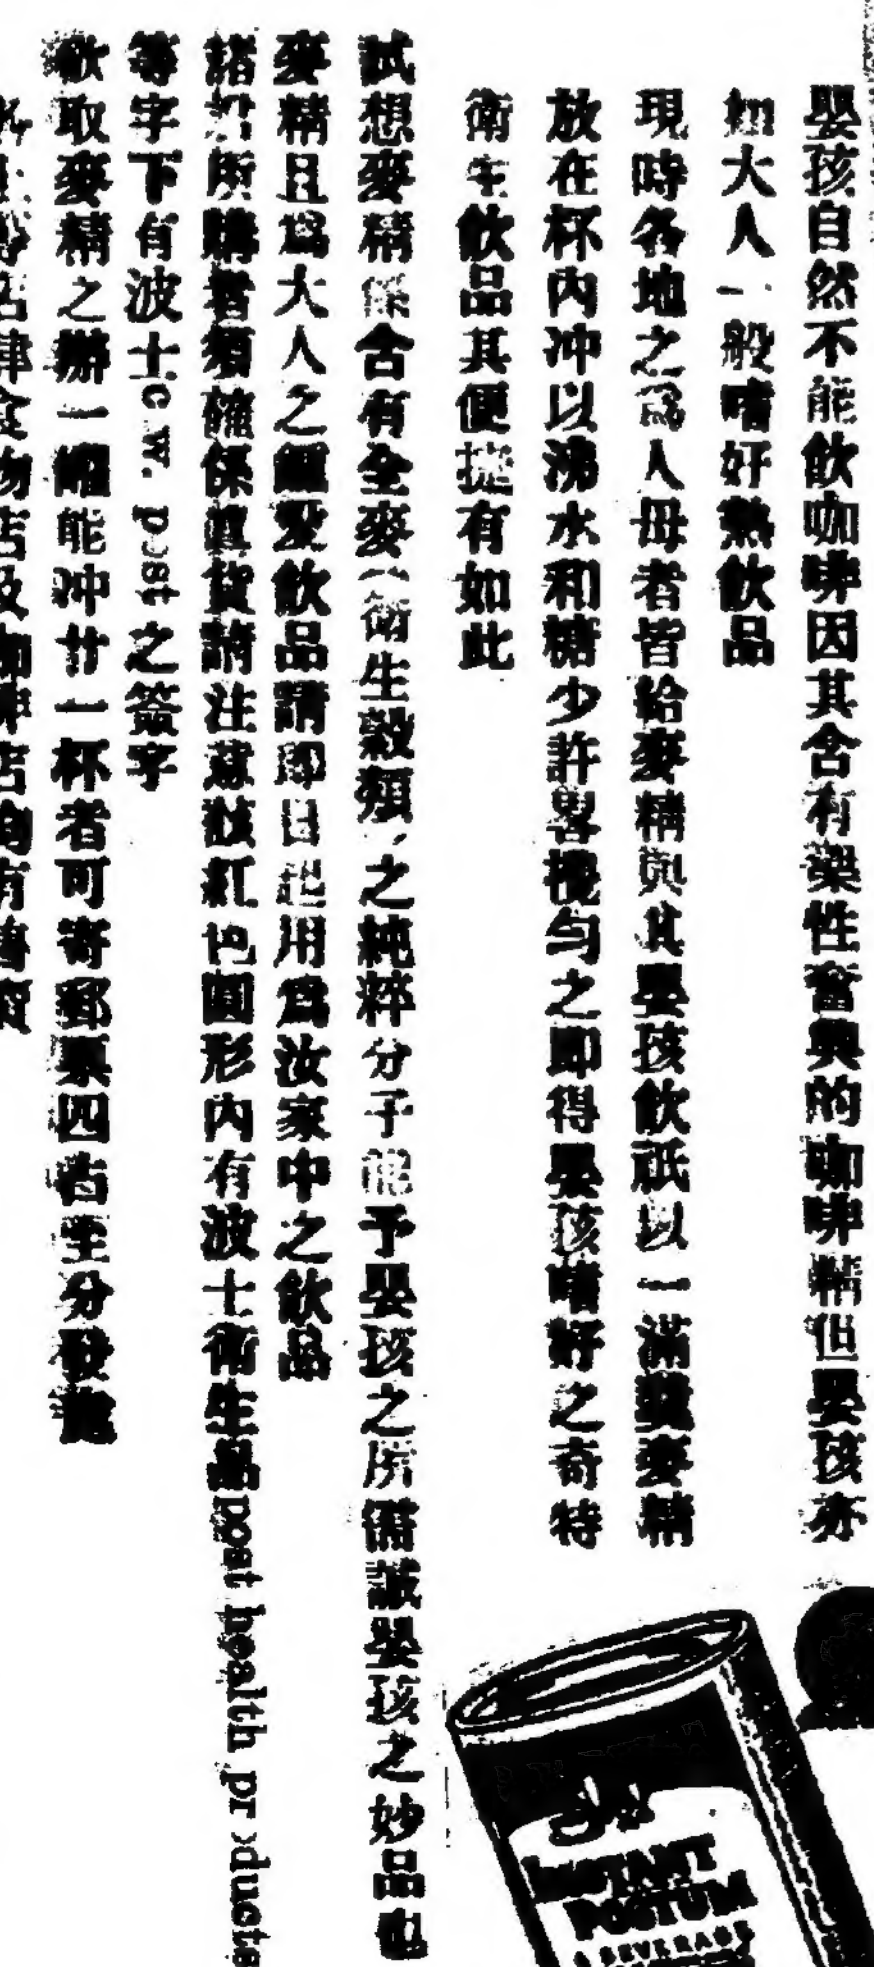 嬰孩自然不能飲咖啡因其含有藥性奮興的咖啡精但嬰孩亦
如大人一般嗜好熱飲品
現時各地之爲人母者皆給麥精與其嬰孩飲祇以一滿匙麥精
放在杯內冲以沸水和糖少許畧攪勻之即得嬰孩嗜好之奇特
衛生飲品其便捷有如此
試想麥精係含有全麥(衛生穀類)之純粹分子能予嬰孩之所需誠嬰孩之妙品也
麥精且爲大人之飲品請即日起用爲汝家中之飲品
諸君所購者須確係眞貨請注意該紅色圓形內有波士衛生品post health products
等字下有波士c.w. post之簽字
欲取麥精之辦一罐能冲廿一杯者可寄郵票四
各埠店食物店及咖啡店均有售賣
INSTANT
POSTUM
A BEVERAGE